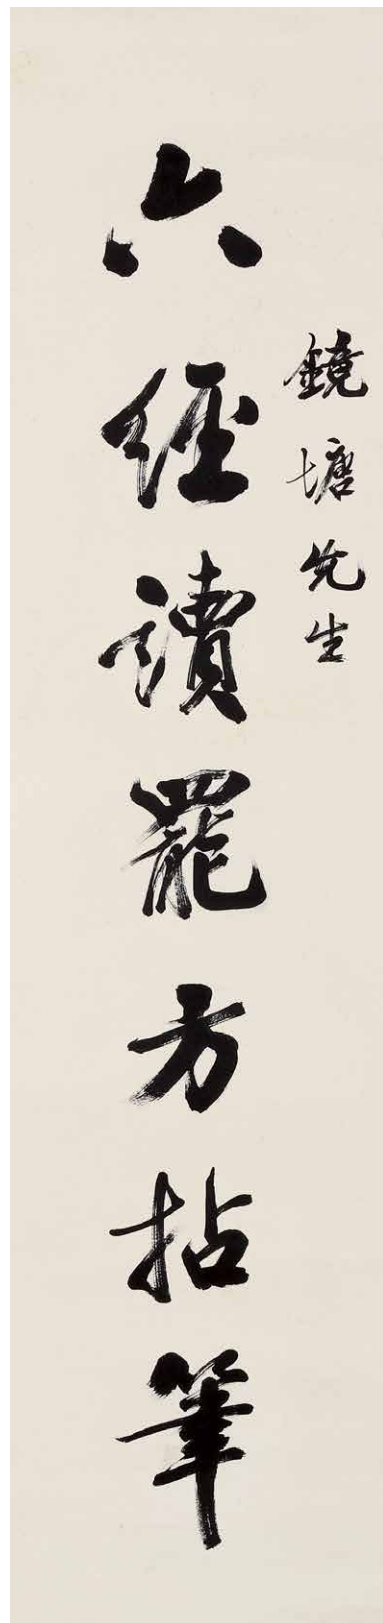 鏡塘先生
六經讀罷方拈筆